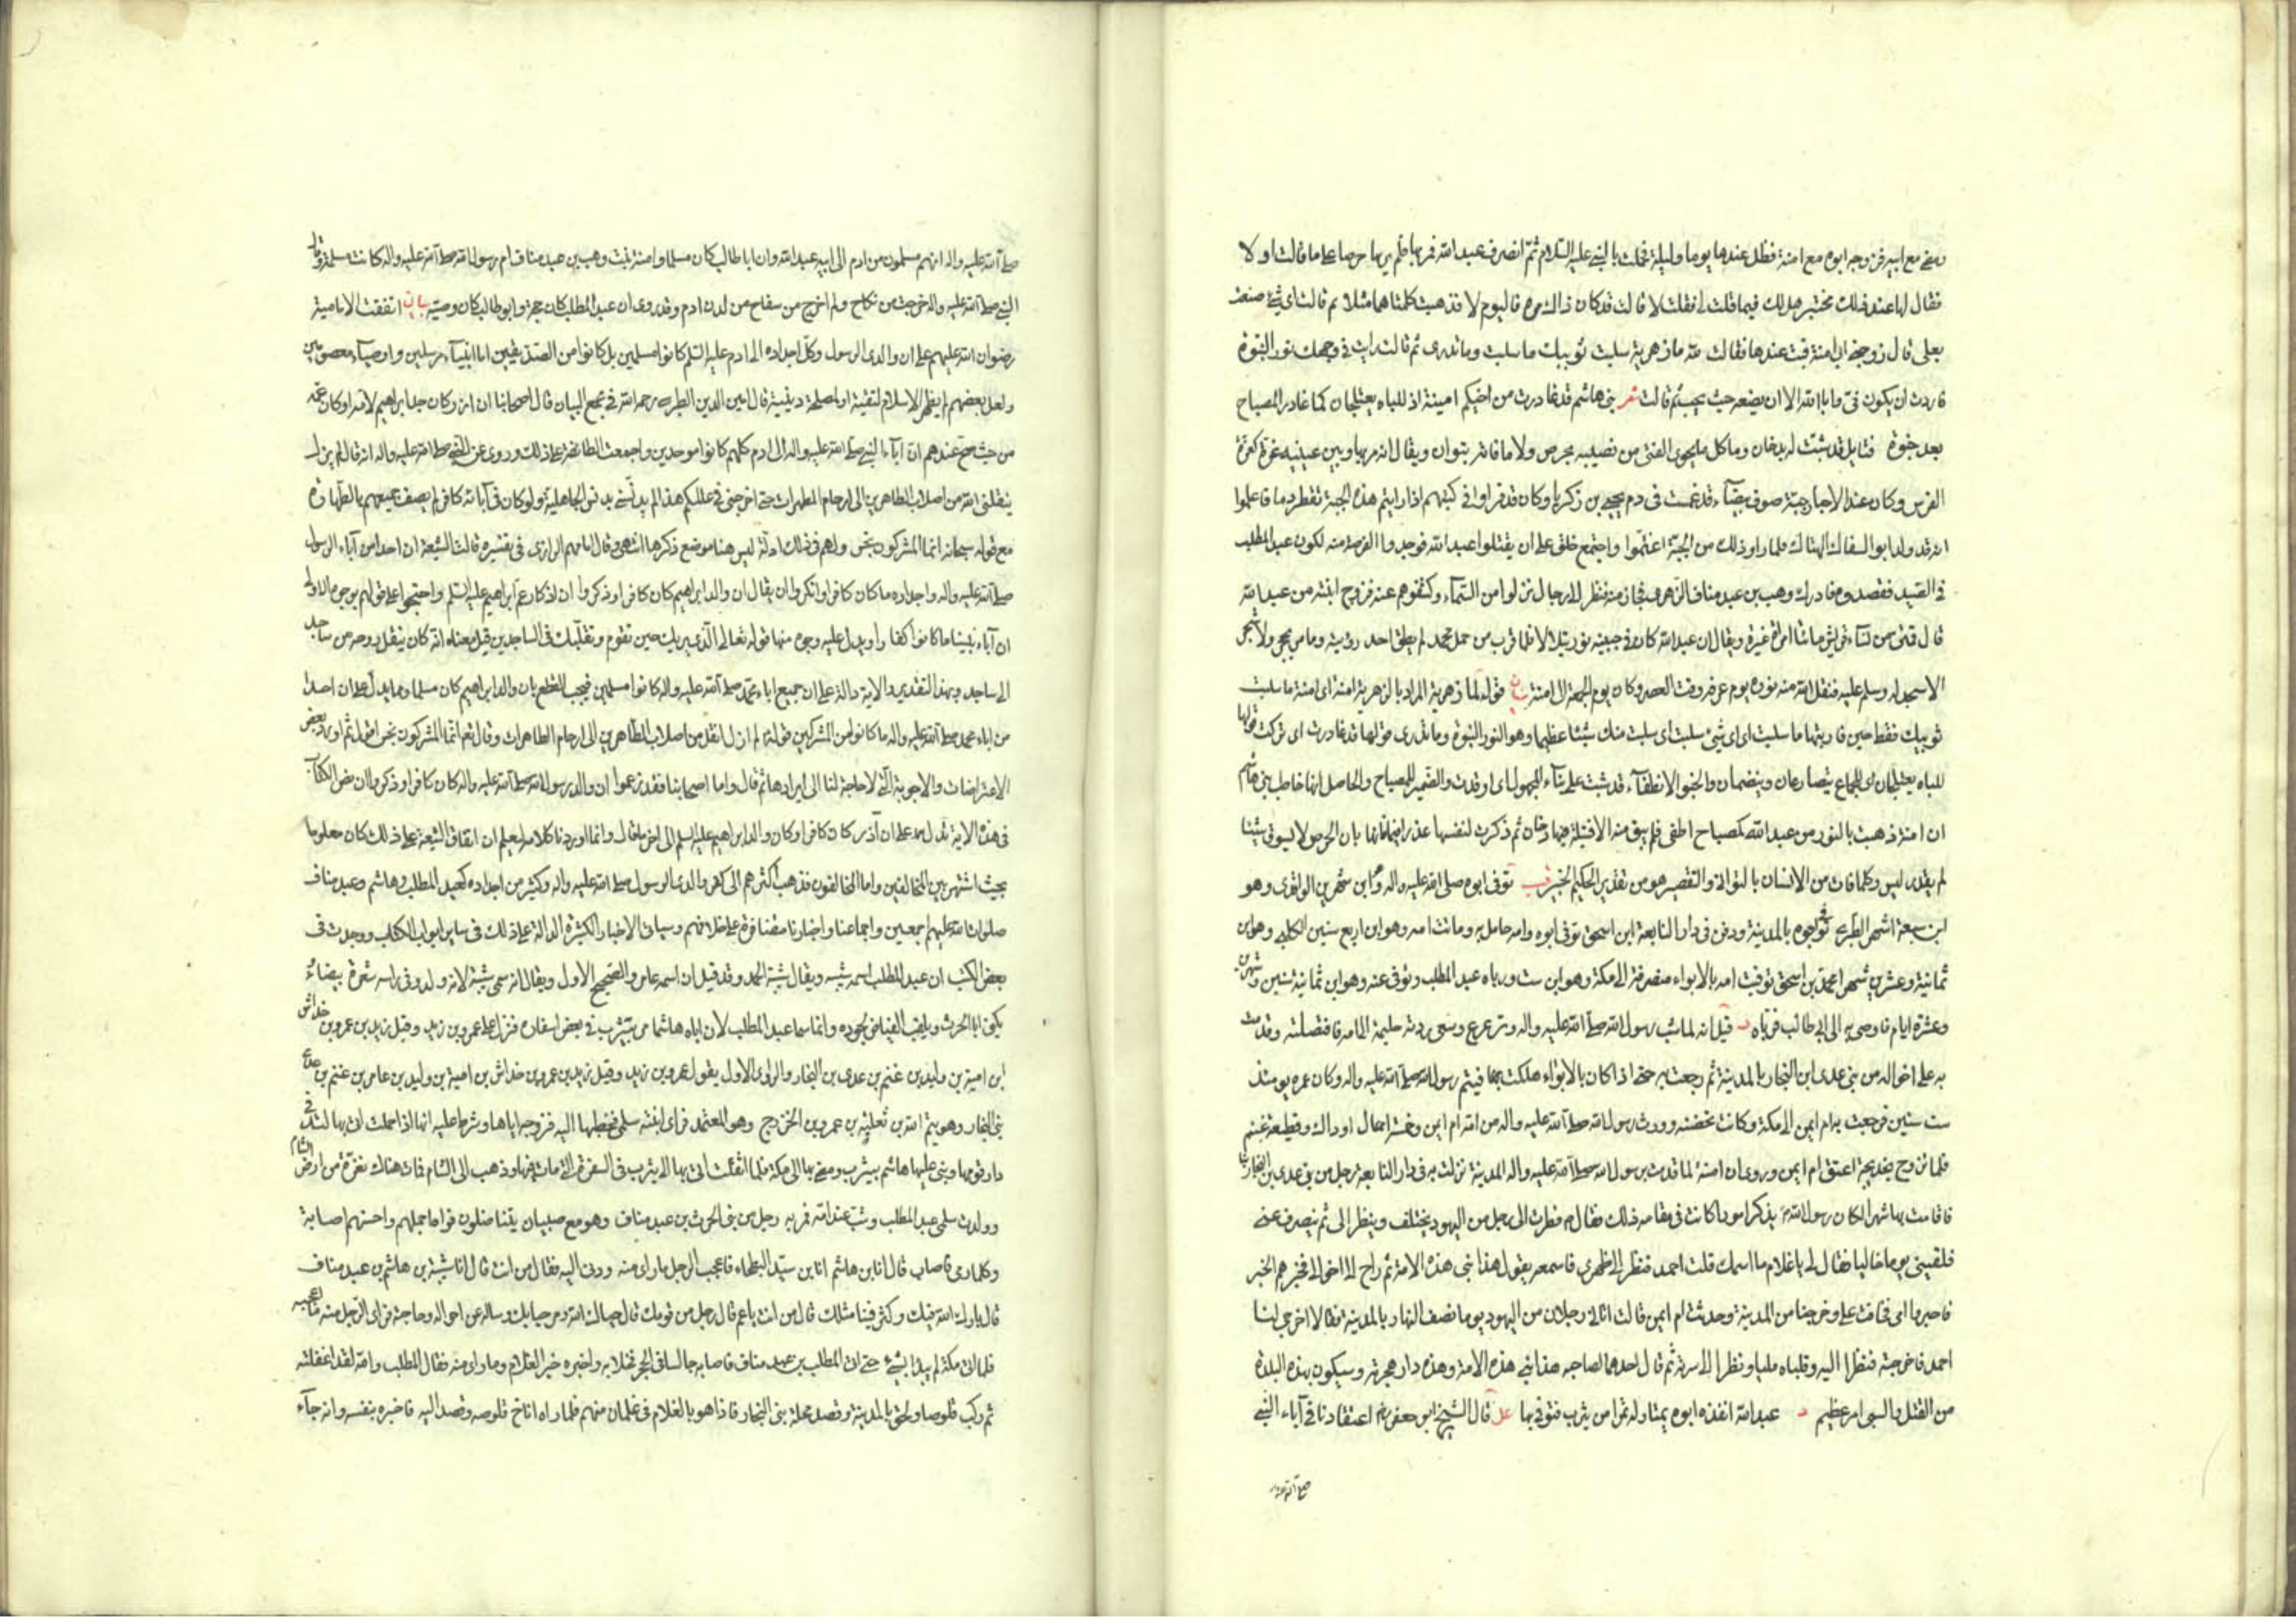 ومضى مع ابيه فزوجه ابوه مع امنة فظل عندها يوما وليلة فحملت بالنبي عليه السلام ثم انصرف عبد الله فمر بها فلم ير بها حرصا على ما قالت اولا
فقال لها عند ذلك مختبرا هل لك فيما قلت لي فقلت لا قالت قد كان ذاك مرة فاليوم لا فذهبت كلمتاهما مثلا ثم قالت اي شيء صنعت
بعدي قال زوجني ابي امنة فبت عندها فقالت لله ما زهرية سلبت ثوبيك ما سلبت وما تدري ثم قالت رايت في وجهك نور النبوة
فاردت ان يكون في وابى الله الا ان يضعه حيث يحب ثم قالت شعر بني هاشم قد غادرت من اخيكم امينة اذ للباه يعتلجان كما غادر المصباح
بعد خبوه فتايل قد شبت له بدخان وما كل ما يحوي الفتى من نصيبه بحرص ولا ما فاته بتوان ويقال انه مر بها وبين عينيه غرة كغرة
الفرس وكان عند الاحبار جبة صوف بيضاء قد غمست في دم يحيى بن زكريا وكان قد قراوا في كتبهم اذا رايتم هذه الجبة تقطر دما فاعلموا
انه قد ولد ابو السفاك الهتاك فلما راوا ذلك من الجبة اغتموا واجتمع خلق على ان يقتلوا عبد الله فوجدوا الفرصة منه لكون عبد المطلب
في الصيد فقصدوه فادرك وهب بن عبد مناف الزهري فجاز منه فنظر الى رجال نزلوا من السماء وكشفوهم عنه فزوج ابنته من عبد الله
قال فمتن من نساء قريش مائتا امراة غيرة ويقال ان عبد الله كان في جبينه نور يتلالا فلما قرب من حمل محمد لم يطق احد رؤيته وما مر بحجر ولا شجر
الا سجد له وسلم عليه فنقل الله منه نوره يوم عرفة وقت العصر وكان يوم الجمعة الى امنة بيان قوله لله ما زهرية المراد بالزهرية امنة اي امنة ما سلبت
ثوبيك فقط حين قاربتها ما سلبت اي اي شيء سلبت اي سلبت منك شيئا عظيما وهو النور النبوة وما تدري قولها قد غادرت اي تركت قولها
للباه يعتلجان اي للجماع يتصارعان وينضمان والخبو الانطفاء قد شبت على بناء المجهول اي اوقدت والضمير للمصباح والحاصل انها خاطب بني هاشم
ان امنة ذهبت بالنور من عبد الله كمصباح اطفي فلم يبق منه الا فتيلة فيها دخان ثم ذكرت لنفسها عذرا فيما فاتها بان الحرص لا يسوق شيئا
لم يقدر ليس وكلما فات من الانسان بالتواني والتقصير هو من تقدير الحكيم الخبير قب توفي ابوه صلى الله عليه واله وهو ابن شهرين الواقدي وهو
ابن سبعة اشهر الطبري توفي ابوه بالمدينة ودفن في دار النابغة ابن اسحق توفي ابوه وامه حامل به وماتت امه وهو ابن اربع سنين الكلبي وهو ابن
ثمانية وعشرين شهرا محمد بن اسحق توفيت امه بالابواء منصرفة الى مكة وهو ابن ست ورباه عبد المطلب وتوفي عنه وهو ابن ثمانية سنين وشهرين
وعشرة ايام فاوصى به الى ابي طالب فرباه د قيل انه لما شب رسول الله صلى الله عليه واله وترعرع وسعى ردته حليمة الى امه فافتصلته وقدمت
به على اخواله من بني عدي ابن النجار بالمدينة ثم رجعت به حتى اذا كان بالابواء هلكت بها فيتم رسول الله صلى الله عليه واله وكان عمره يومئذ
ست سنين فرجعت به ام ايمن الى مكة وكانت تحضنه وورث رسول الله صلى الله عليه واله من امه ام ايمن وخمسة اجمال اوداك وقطيعة غنم
فلما تزوج بخديجة اعتق ام ايمن وروي ان امنة لما قدمت برسول الله صلى الله عليه واله المدينة نزلت به في دار النابغة رجل من بني عدي بن النجار
فاقامت بها شهرا فكان رسول الله يذكر امورا كانت في مقامه ذلك فقال نظرت الى رجل من اليهود يختلف وينظر الي ثم ينصرف عني
فلقيني يوما خاليا فقال لي يا غلام ما اسمك قلت احمد فنظر الى ظهري فاسمعه يقول هذا نبي هذه الامة ثم راح الى اخوالي فخبرهم الخبر
فاخبروا امي فخافت علي وخرجنا من المدينة وحدثت ام ايمن قالت اتاني رجلان من اليهود يوما نصف النهار بالمدينة فقالا اخرجي لنا
احمد فاخرجته فنظرا اليه وقلباه مليا ونظرا الى سرته ثم قال احدهما لصاحبه هذا نبي هذه الامة وهذه دار هجرته وسيكون بهذه البلدة
من القتل والسبي امر عظيم د عبد الله انفذه ابوه يمتار له تمرا من يثرب فتوفي بها عد قال الشيخ ابو جعفر اعتقادنا في آباء النبي
صلى الله عليه
صلى الله عليه واله انهم مسلمون من ادم الى ابيه عبد الله وان ابا طالب كان مسلما وامنة بنت وهب بن عبد مناف ام رسول الله صلى الله عليه واله كانت مسلمة وقال
النبي صلى الله عليه واله خرجت من نكاح ولم اخرج من سفاح من لدن ادم وقد روي ان عبد المطلب كان حجة وابو طالب كان وصيه بيان اتفقت الامامية
رضوان الله عليهم على ان والدي الرسول وكل اجداده الى ادم عليه السلم كانوا مسلمين بل كانوا من الصديقين اما انبياء مرسلين او اوصياء معصومين
ولعل بعضهم لم يظهر الاسلام لتقية او لمصلحة دينية قال امين الدين الطبرسي رحمه الله في مجمع البيان قال اصحابنا ان ازر كان جد ابراهيم لامه او كان عمه
من حيث صح عندهم ان آباء النبي صلى الله عليه واله الى ادم كلهم كانوا موحدين واجمعت الطائفة على ذلك وروي عن النبي صلى الله عليه واله انه قال لم يزل
ينقلني الله من اصلاب الطاهرين الى ارحام المطهرات حتى اخرجني في عالمكم هذا لم يدنسني بدنس الجاهلية ولو كان في آبائه كافر لم يصف جميعهم بالطهارة
مع قوله سبحانه انما المشركون نجس ولهم في ذلك ادلة ليس هنا موضع ذكرها انتهى وقال امامهم الرازي في تفسيره قالت الشيعة ان احدا من آباء الرسول
صلى الله عليه واله واجداده ما كان كافرا وانكروا ان يقال ان والد ابراهيم كان كافرا وذكروا ان ازر كان عم ابراهيم عليه السلم واحتجوا على قولهم بوجوه الاولى
ان آباء نبينا ما كانوا كفارا ويدل عليه وجوه منها قوله تعالى الذي يريك حين تقوم وتقلبك في الساجدين قيل معناه انه كان ينقل روحه من ساجد
الى ساجد وبهذا التقدير والاية دالة على ان جميع اباء محمد صلى الله عليه واله كانوا مسلمين فيجب القطع بان والد ابراهيم كان مسلما ومما يدل على ان احدا
من اباء محمد صلى الله عليه واله ما كانوا من المشركين قوله لم ازل انقل من اصلاب الطاهرين الى ارحام الطاهرات وقال تعالى انما المشركون نجس اقول ثم اورد بعض
الاعتراضات والاجوبة التي لا حاجة لنا الى ايرادها ثم قال واما اصحابنا فقد زعموا ان والد رسول الله صلى الله عليه واله كان كافرا وذكروا ان نص الكتاب
في هذه الاية تدل على ان آذر كان كافرا وكان والد ابراهيم عليه السلم الى اخر ما قال وانما اوردنا كلامه ليعلم ان اتفاق الشيعة على ذلك كان معلوما
بحيث اشتهر بين المخالفين واما المخالفون فذهب اكثرهم الى كفر والدي الرسول صلى الله عليه واله وكثير من اجداده كعبد المطلب وهاشم وعبد مناف
صلوات الله عليهم اجمعين واجماعنا واخبارنا متضافرة على خلافهم وسياتي الاخبار الكثيرة الدالة على ذلك في ساير ابواب الكتاب ووجدت في
بعض الكتب ان عبد المطلب اسمه شيبه ويقال شيبة الحمد وقد قيل ان اسمه عامر والصحيح الاول ويقال انه سمي شيبة لانه ولد وفي راسه شعرة بيضاء
يكنى ابا الحرث ويلقب الفياض لجوده وانما سما عبد المطلب لان اباه هاشما مر بيثرب في بعض اسفاره فنزل على عمرو بن زيد وقيل زيد بن عمرو بن خداش
ابن امية بن وليد بن غنم بن عدي بن النجار والراوي الاول يقول عمرو بن زيد وقيل زيد بن عمرو بن خداش بن امية بن وليد بن عامر بن غنم بن عدي
بني النجار وهو تيم الله بن ثعلبة بن عمرو بن الخزرج وهو المعتمد فراى ابنته سلمى فخطبها اليه فزوجه اياها وشرط عليه انها اذا حملت اتى بها لتلد في
دار قومها وبنى عليها هاشم بيثرب ومضى بها الى مكة فلما اثقلت اتى بها الى يثرب في السفرة التي مات فيها وذهب الى الشام فمات هناك بغزة من ارض الشام
وولدت سلمى عبد المطلب وشب عند امه فمر به رجل من بني الحرث بن عبد مناف وهو مع صبيان يتناضلون فراه اجملهم واحسنهم اصابة
وكلما رمى فاصاب قال انا ابن هاشم انا بن سيد البطحاء فاعجب الرجل ما راى منه ودنى اليه فقال من انت قال انا شيبة بن هاشم بن عبد مناف
قال بارك الله فيك وكثر فينا مثلك قال من انت يا عم قال رجل من قومك قال حياك الله ومرحبا بك وساله عن احواله وحاجته فراى الرجل منه ما اعجبه
فلما اتى مكة لم يبدا بشيء حتى اتى المطلب بن عبد مناف فاصابه جالسا في الحجر فخلا به واخبره خبر الغلام وما راى منه فقال المطلب والله لقد اغفلته
ثم ركب قلوصا ولحق بالمدينة وقصد محلة بني النجار فاذا هو بالغلام في غلمان منهم فلما راه اناخ قلوصه وقصد اليه فاخبره بنفسه وانه جاء